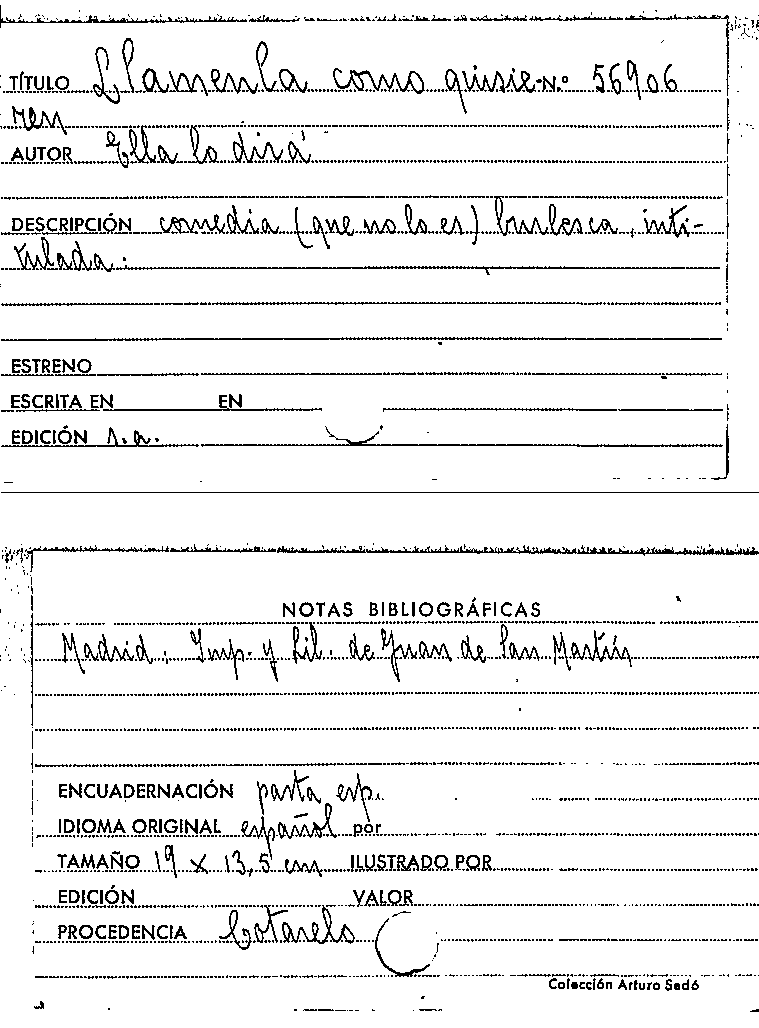 TÍTULO Llamenla como quisie- N.º 56906
ren
AUTOR Ella lo dirá
DESCRIPCIÓN comedia (que no lo es) burlesca, inti-
tulada:
ESTRENO
ESCRITA EN EN
EDICIÓN s.a.
NOTAS BIBLIOGRÁFICAS
Madrid: Imp. y Lib. de Juan de San Martín
ENCUADERNACIÓN pasta esp.
IDIOMA ORIGINAL español por
TAMAÑO 19 x 13,5 cm ILUSTRADO POR
EDICIÓN VALOR
PROCEDENCIA Cotarelo
Colección Arturo Sedó